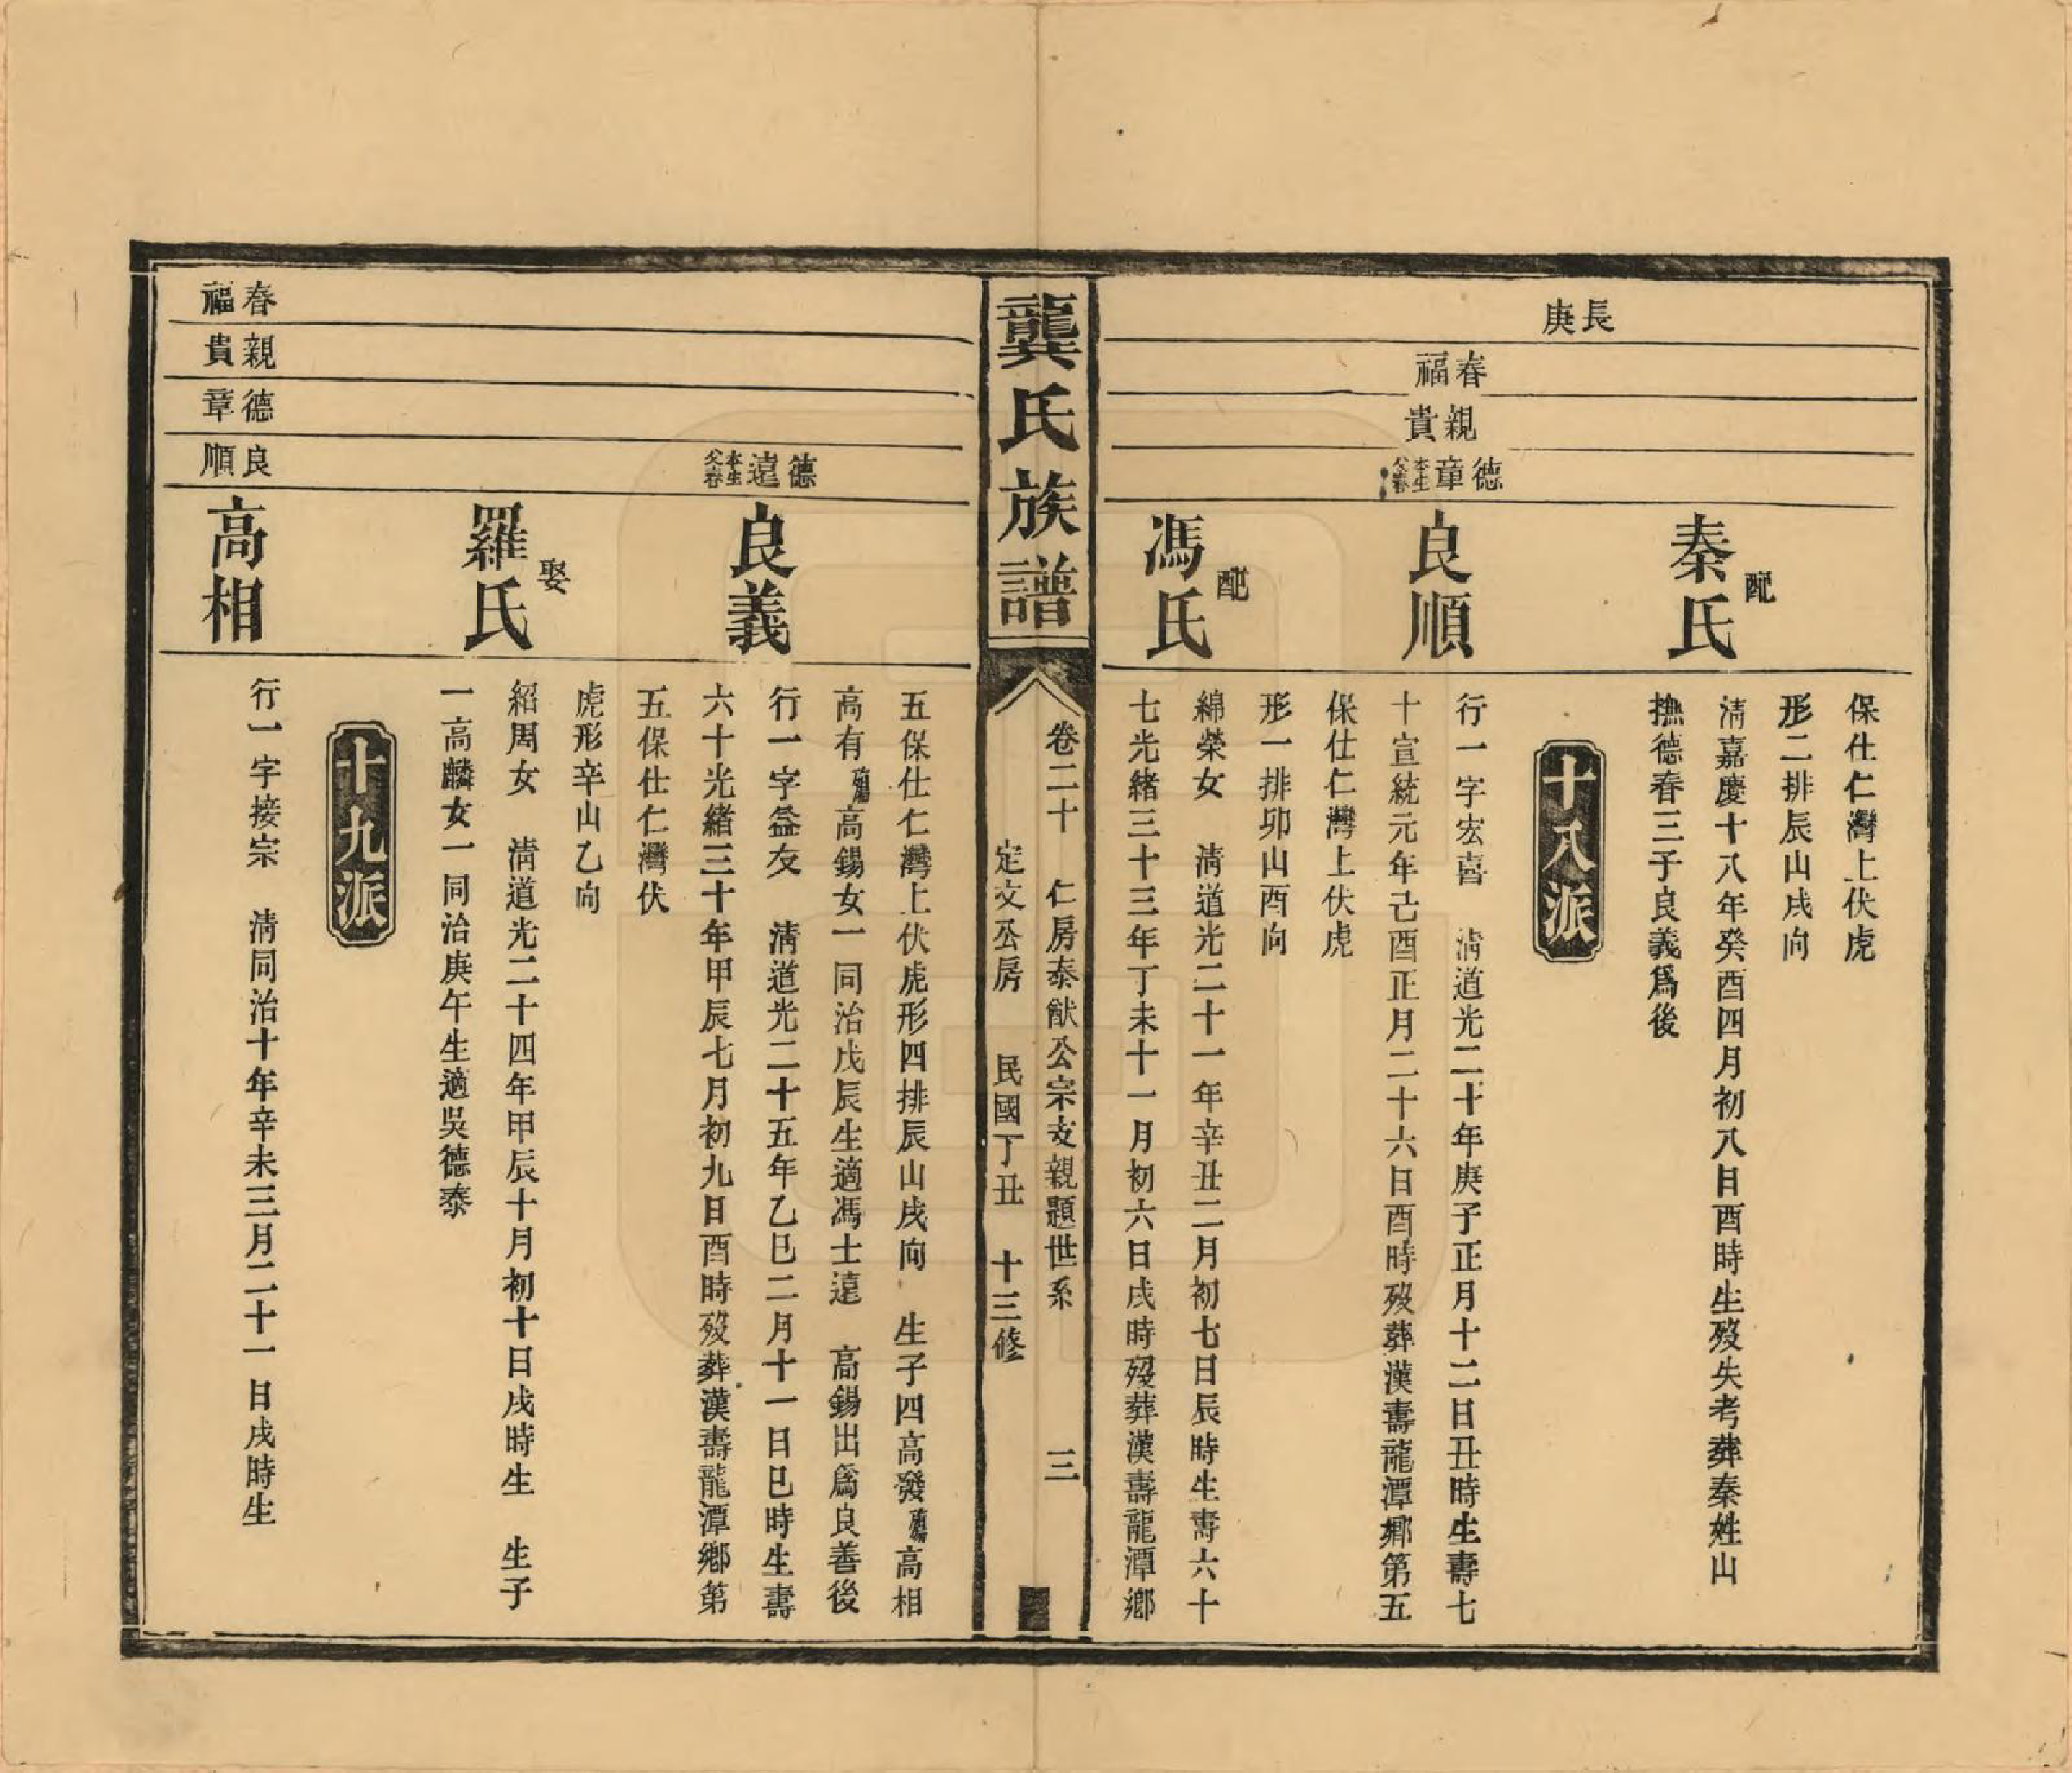 長庚
春福
親貴
德章 本生父春
保仕仁灣上伏虎
形二排辰山戌向
配
秦氏
清嘉慶十八年癸酉四月初八日酉時生歿失考葬秦姓山
撫德春三子良義爲後
十八派
良順
行一字宏喜 清道光二十年庚子正月十二日丑時生壽七
十宣統元年己酉正月二十六日酉時歿葬漢壽龍潭鄉第五
保仕仁灣上伏虎
形一排卯山酉向
配
馮氏
綿榮女 清道光二十一年辛丑二月初七日辰時生壽六十
七光緒三十三年丁未十一月初六日戌時歿葬漢壽龍潭鄉
龔氏族譜
卷二十 仁房泰猷公宗支親題世系 三
定交公房 民國丁丑 十三修
五保仕仁灣上伏虎形四排辰山戌向 生子四高發殤高相
高有殤高錫女一同治戊辰生適馮士遠 高錫出爲良善後
德遠 本生父春
良義
行一字益友 清道光二十五年乙巳二月十一日巳時生壽
六十光緒三十年甲辰七月初九日酉時歿葬漢壽龍潭鄉第
五保仕仁灣伏
虎形辛山乙向
娶
羅氏
紹周女 清道光二十四年甲辰十月初十日戌時生 生子
一高麟女一同治庚午生適吳德泰
十九派
春福
親貴
德章
良順
高相
行一字接宗 清同治十年辛未三月二十一日戌時生